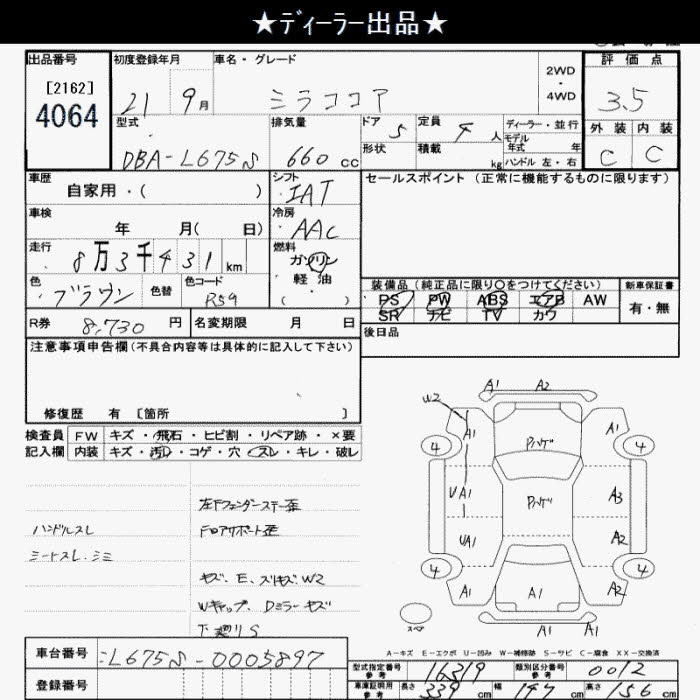 ★ディーラー出品★
出品番号
[2162]
4064
初度登録年月 車名・グレード
21 9月 ミラココア
2WD
・
4WD
評価点
3.5
型式 排気量 ドア 5 定員 4 人 ディーラー・並行
DBA-L675S 660 cc
形状 積載 kg
モデル年式 年
ハンドル 左・右
外装 内装
C C
車歴 自家用・( )
シフト IAT
セールスポイント(正常に機能するものに限ります)
車検 年 月( 日)
冷房 AAC
走行 8万3千431km
燃料 ガソリン
軽油
( ・ )
色 ブラウン 色替 色コード R59
装備品(純正品に限り○をつけてください) 新車保証書
PS PW ABS エアB AW 有・無
SR ナビ TV カワ
R券 8,730 円 名変期限 月 日
後日品
注意事項申告欄(不具合内容等は具体的に記入して下さい)
修復歴 有 [箇所 ]
検査員 FW キズ・飛石・ヒビ割・リペア跡・×要
記入欄 内装 キズ・汚れ・コゲ・穴・スレ・キレ・破レ
左フェンダーステー歪
ハンドルスレ ドロアサポート歪
シートスレ・シミ
キズ、E、スリキズ、W2
Wキャップ、Dミラーキズ
下廻りS
A1 A2
W2
A1 A1
4 4
Pハゲ
UA1 Pハゲ A3
UA1 A2
4 4
A1 A1 A2
スペア A1 A1
A-キズ E-エクボ U-凹み W-補修跡 S-サビ C-腐食 XX-交換済
車台番号 L675S-0005897
登録番号
型式指定番号 参考 16319 類別区分番号 参考 0012
車庫証明用 参考 長さ 339 cm 幅 147 cm 高さ 156 cm